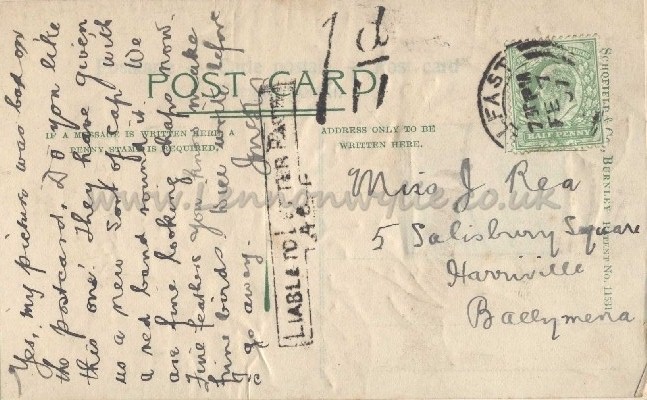 POST CARD.
IF A MESSAGE IS WRITTEN HERE A
PENNY STAMP IS REQUIRED.
ADDRESS ONLY TO BE
WRITTEN HERE.
Yes, my picture was bad on
the postcard. Do you like
this one. They have given
us a new sort of cap with
a red band round it. We
are fine looking chaps now.
Fine feathers you know make
fine birds. I will write before
I go away.
1d
LIABLE TO LETTER RATE
LFAST
7 PM
FE 7
HALF PENNY
Miss J. Rea
5 Salisbury Square
Harriville
Ballymena
SCHOFIELD & Co., BURNLEY
PATENT No.
www.Lennonwylie.co.uk